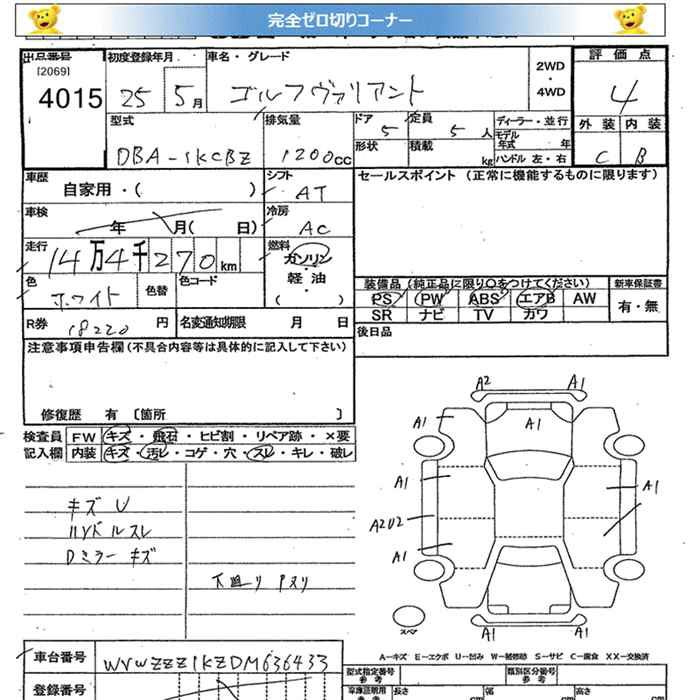 完全ゼロ切りコーナー
出品番号 初度登録年月 車名・グレード 2WD・4WD 評価点
[2069]
4015 25 5月 ゴルフヴァリアント 4
型式 排気量 ドア 定員 ディーラー・並行 外装 内装
DBA-1KCBZ 1200cc 5 5人 モデル年式 年 C B
形状 積載 kg ハンドル 左・右
車歴 シフト セールスポイント (正常に機能するものに限ります)
自家用・( ) AT
車検 冷房
年 月( 日) AC
走行 燃料
14万4千270km ガソリン・軽油・( )
色 色替 色コード 装備品 (純正品に限り○をつけてください) 新車保証書
ホワイト PS PW ABS エアB AW 有・無
SR ナビ TV カワ
R券 18220円 名変通知期限 月 日 後日品
注意事項申告欄 (不具合内容等は具体的に記入して下さい)
修復歴 有 〔箇所 〕
検査員 FW キズ・飛石・ヒビ割・リペア跡・×要
記入欄 内装 キズ・汚レ・コゲ・穴・スレ・キレ・破レ
キズ U
ハンドルスレ
Dミラー キズ
下廻り Pスリ
A2 A1
A1 A1 A1
A1 A1
A2U2
A1
A1 A1
スペア
A-キズ E-エクボ U-凹み W-補修跡 S-サビ C-腐食 XX-交換済
車台番号 WVWZZZ1KZDM636433
型式指定番号 参考 類別区分番号 参考
登録番号 車庫証明用 参考 長さ cm 幅 cm 高さ cm